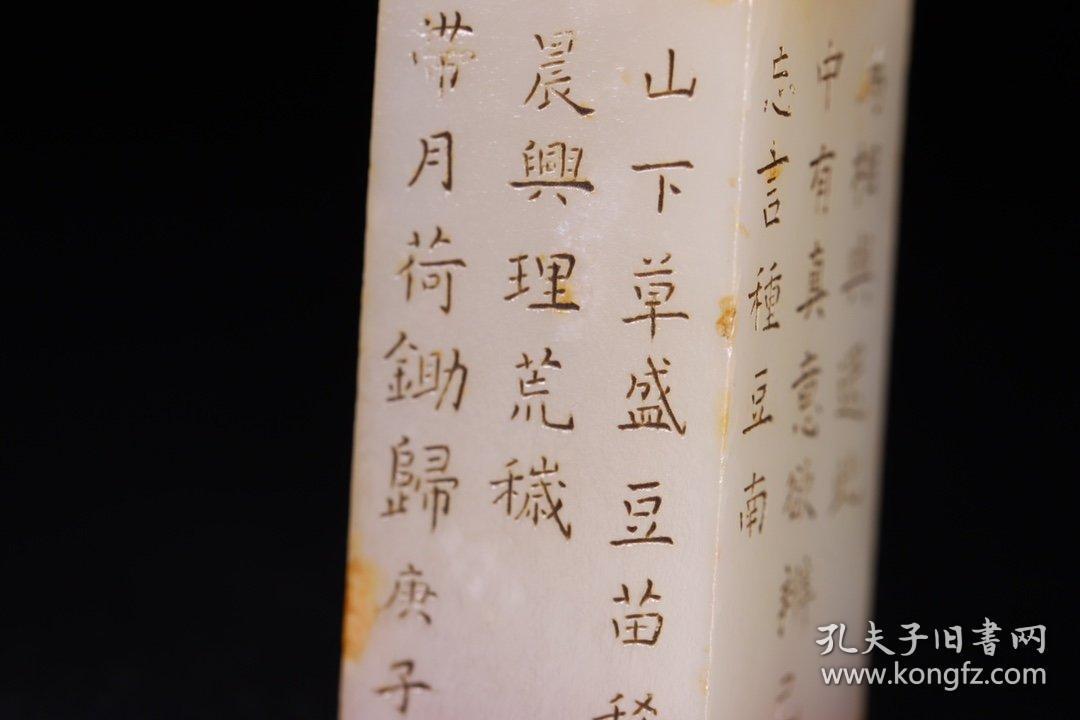 鳥相與還此
中有真意欲辨
忘言種豆南
山下草盛豆苗稀
晨興理荒穢
帶月荷鋤歸庚子
孔夫子旧書网
www.kongfz.com